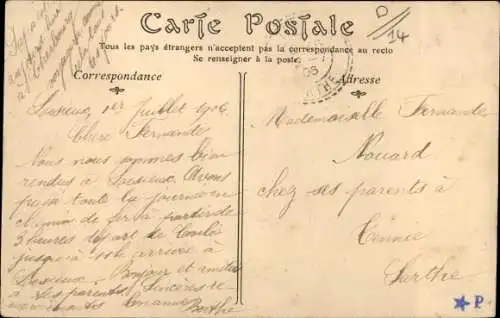 Carte Postale
Tous les pays étrangers n'acceptent pas la correspondance au recto
Se renseigner à la poste.
Correspondance
Adresse
D/14
Lisieux, 1er Juillet 1906
Chère Fernande
Nous nous sommes bien
rendus à Lisieux. Avons
passé toute la journée en
chemin de fer à partir de
3 heures départ de
jusqu'à 10h arrivée à
Lisieux. Bonjour et amitiés
à tes parents. Sincères re-
Berthe
Mademoiselle Fernande
Nouard
chez ses parents à
Tennie
Sarthe
P